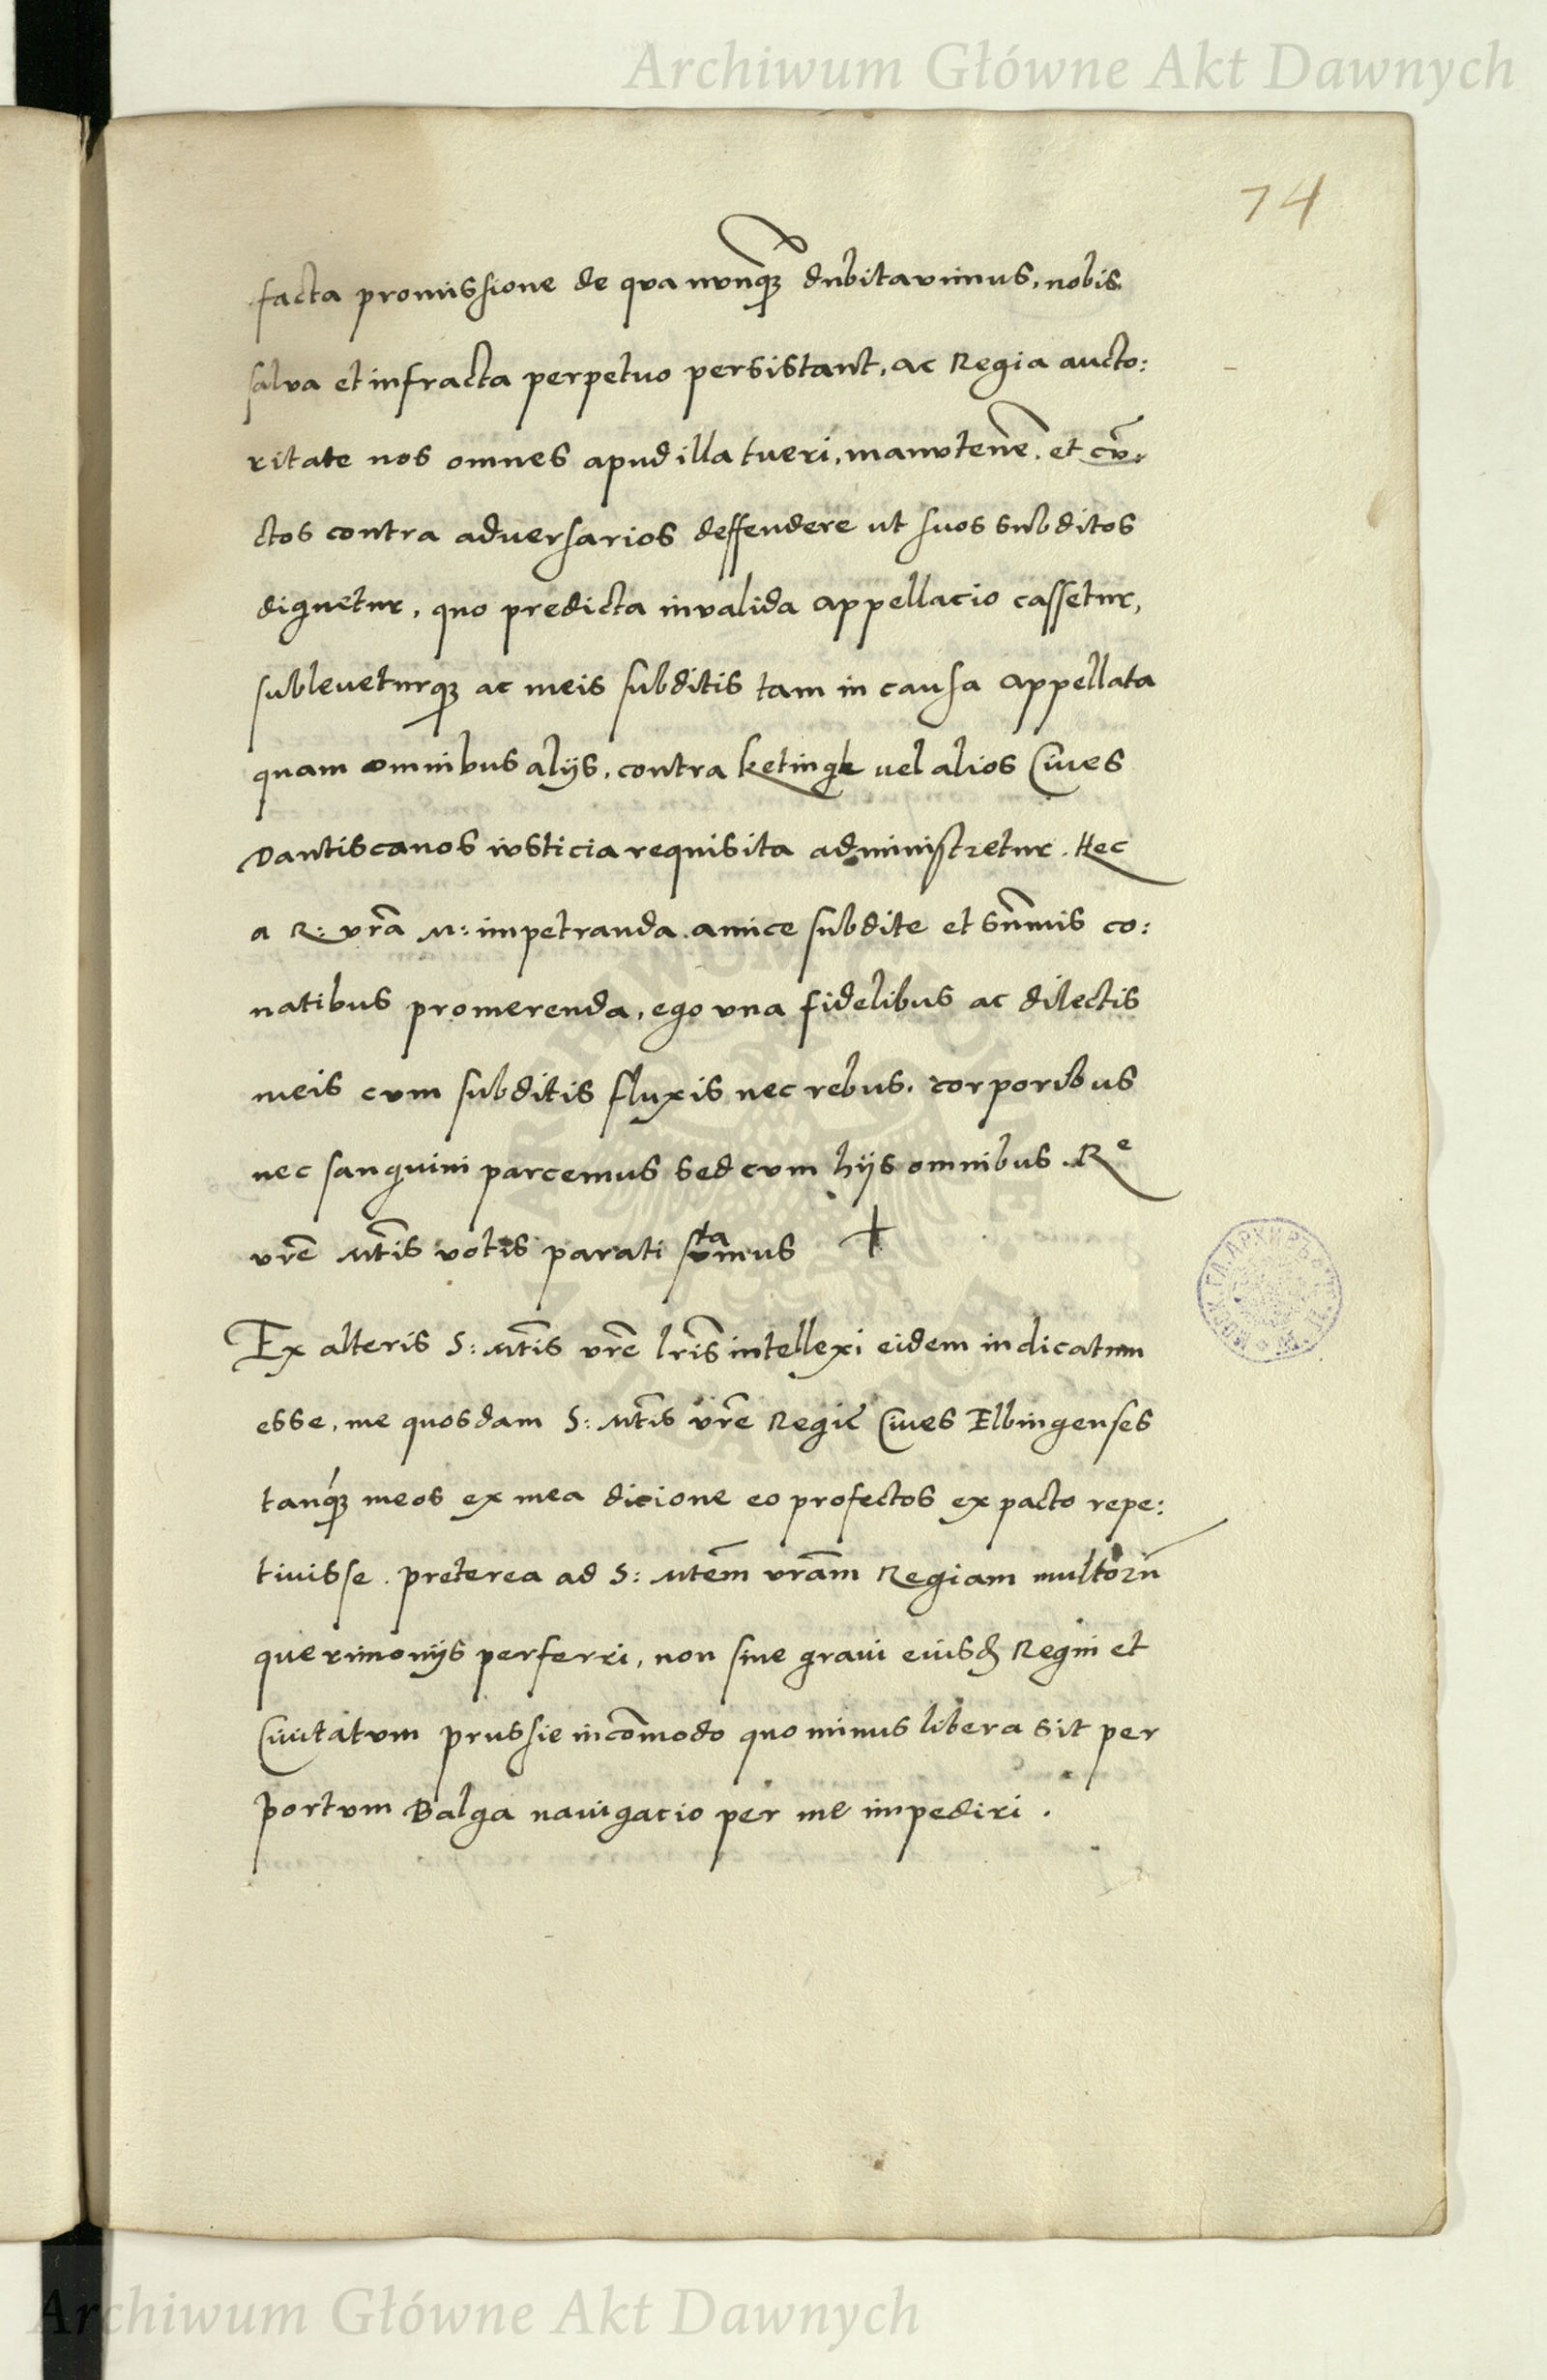 Archiwum Główne Akt Dawnych
74
facta promissione de qua nunq̃ꝫ dubitauimus, nobis
salua et infracta perpetuo persistant, ac Regia aucto:
ritate nos omnes apud illa tueri, manutenẽ, et cũ:
ctos contra aduersarios deffendere ut suos subditos
dignetur, quo predicta inualida appellacio cassetur,
subleueturqꝫ ac meis subditis tam in causa appellata
quam omnibus alijs, contra ketingk uel alios Ciues
Dantiscanos iusticia requisita administretur. Hec
a R: vrã M: impetranda amice subdite et sũmis co:
natibus promerenda, ego vna fidelibus ac dilectis
meis cum subditis fluxis nec rebus, corporibus
nec sanguini parcemus sed cum hijs omnibus Rᵉ
vrẽ Mt̃is uotis parati sumus ta +
Ex alteris S: Mt̃is vrẽ lr̃is intellexi eidem indicatum
esse, me quosdam S: Mt̃is vrẽ Regiẽ Ciues Elbingenses
tanq́ꝫ meos ex mea dicione eo profectos ex pacto repe:
tiuisse. preterea ad S: Mtem̃ vrãm Regiam multorũ
querimonijs perferri, non sine graui eiusđ Regni et
Ciuitatum prussie incõmodo quo minus libera sit per
portum Balga nauigacio per me impediri.
Archiwum Główne Akt Dawnych